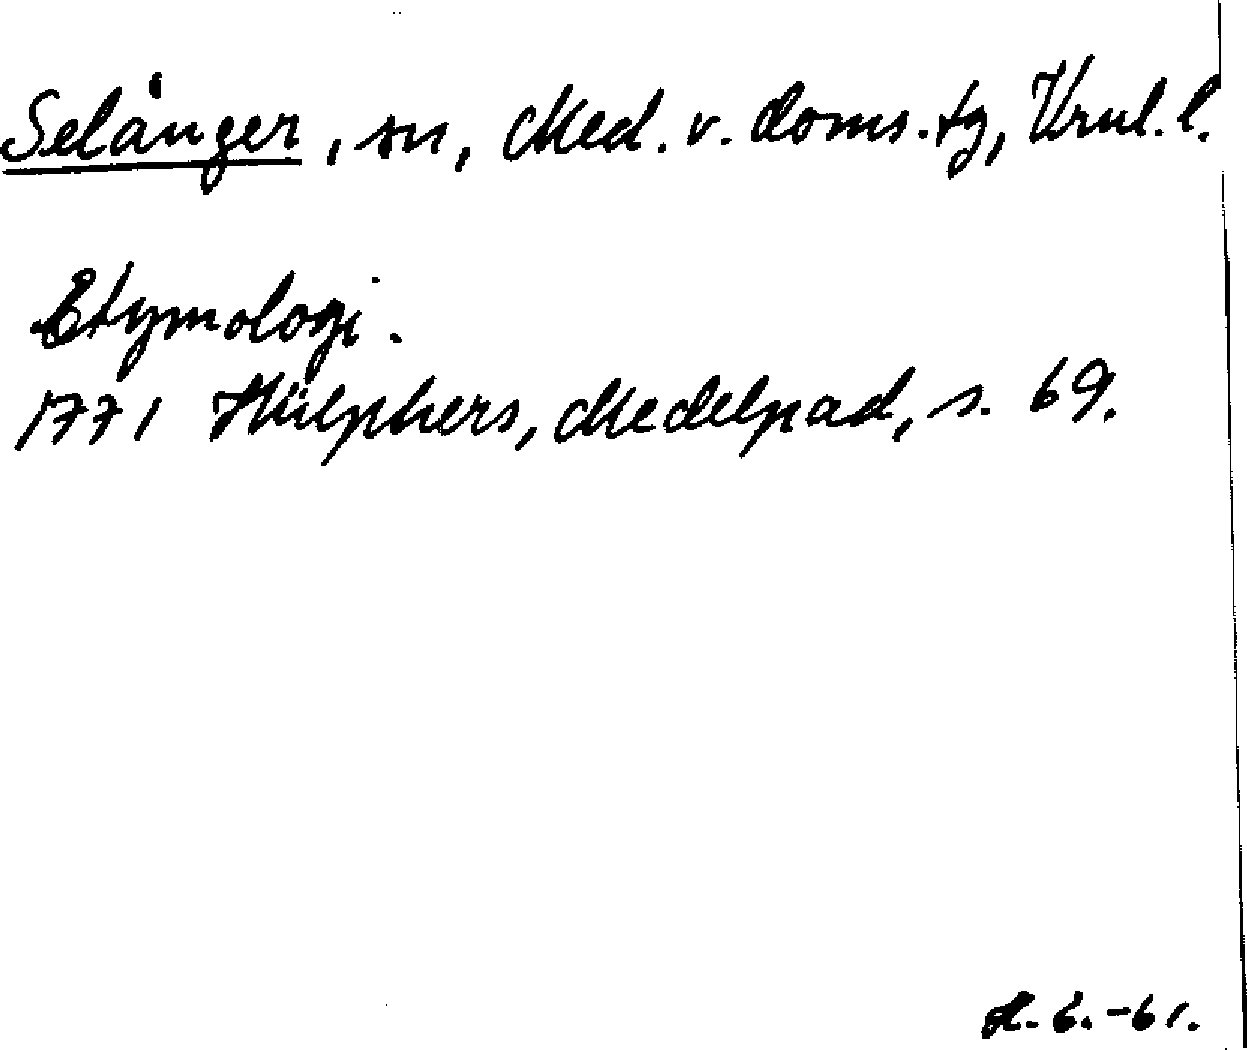 Selånger, sn, Med. v. doms. tg, Vrnl. l.
Etymologi.
1771 Hülphers, Medelpad, s. 69.
H. G. -61.